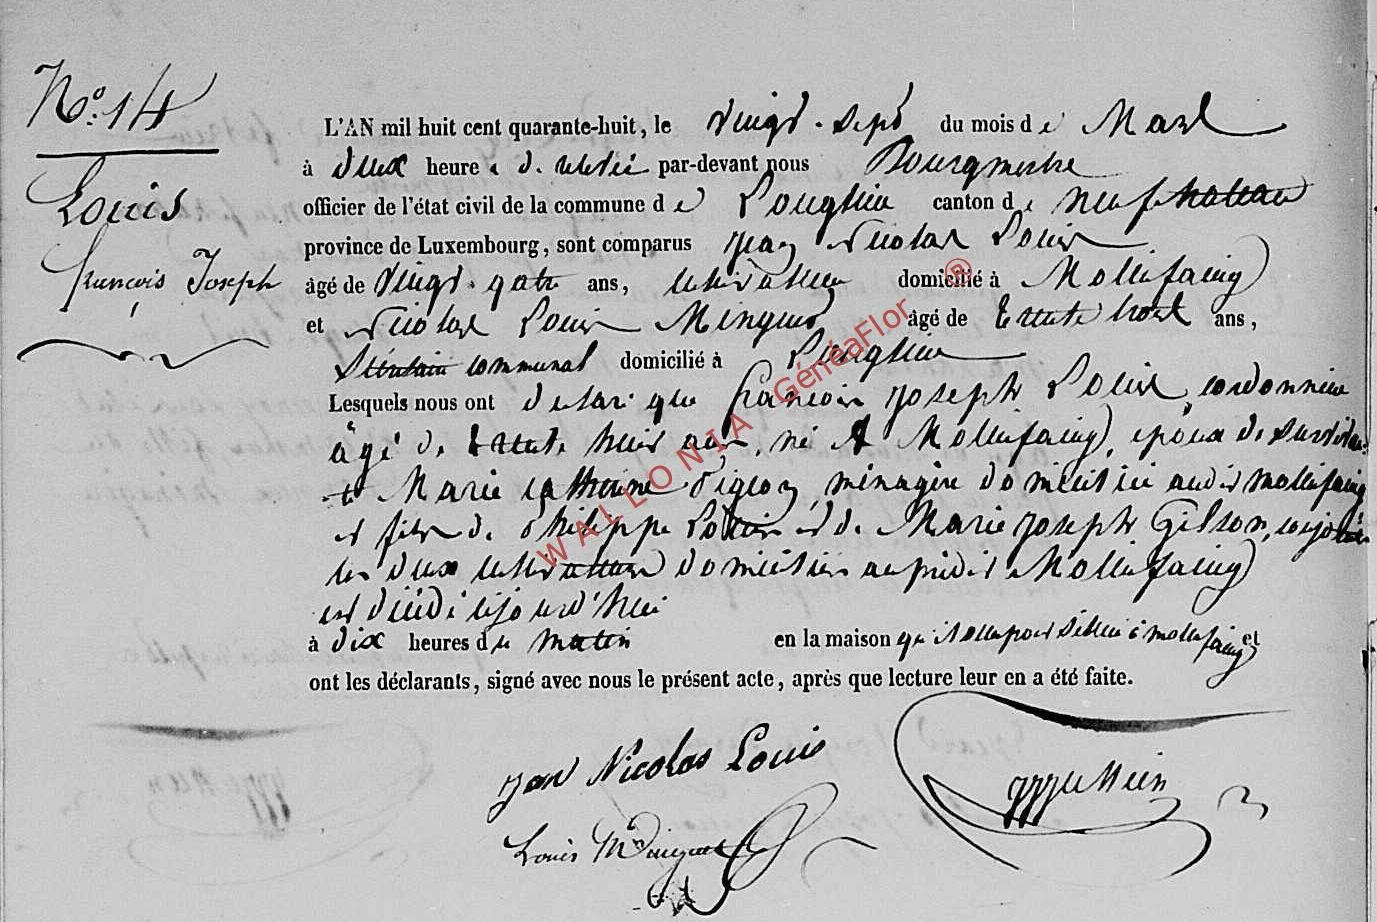 N° 14
Louis
françois Joseph
L'AN mil huit cent quarante-huit, le vingt-sept du mois de Mars
à deux heures de relevée par-devant nous Bourgmestre
officier de l'état civil de la commune de Longlier canton de neufchateau
province de Luxembourg, sont comparus jean Nicolas Louis
âgé de vingt-quatre ans, cultivateur domicilié à Mollifaing
et Nicolas Louis Minguet âgé de trente trois ans,
secrétaire communal domicilié à Longlier
Lesquels nous ont declaré que francois joseph Louis, cordonnier
âgé de trente huit ans, né à Mollifaing, époux de survivan-
te Marie catherine Pigeon ménagère domiciliée audit mollifaing
et fils de philippe Louis et de Marie joseph Gilson, conjoints
les deux cultivateurs domiciliés au prédit Mollifaing
est décédé cejourd'hui
à dix heures du matin en la maison qu'il occupoit sitée à mollifaing et
ont les déclarants, signé avec nous le présent acte, après que lecture leur en a été faite.
jean Nicolas Louis
Louis Minguet
WALLONIA - GénéaFlor ®